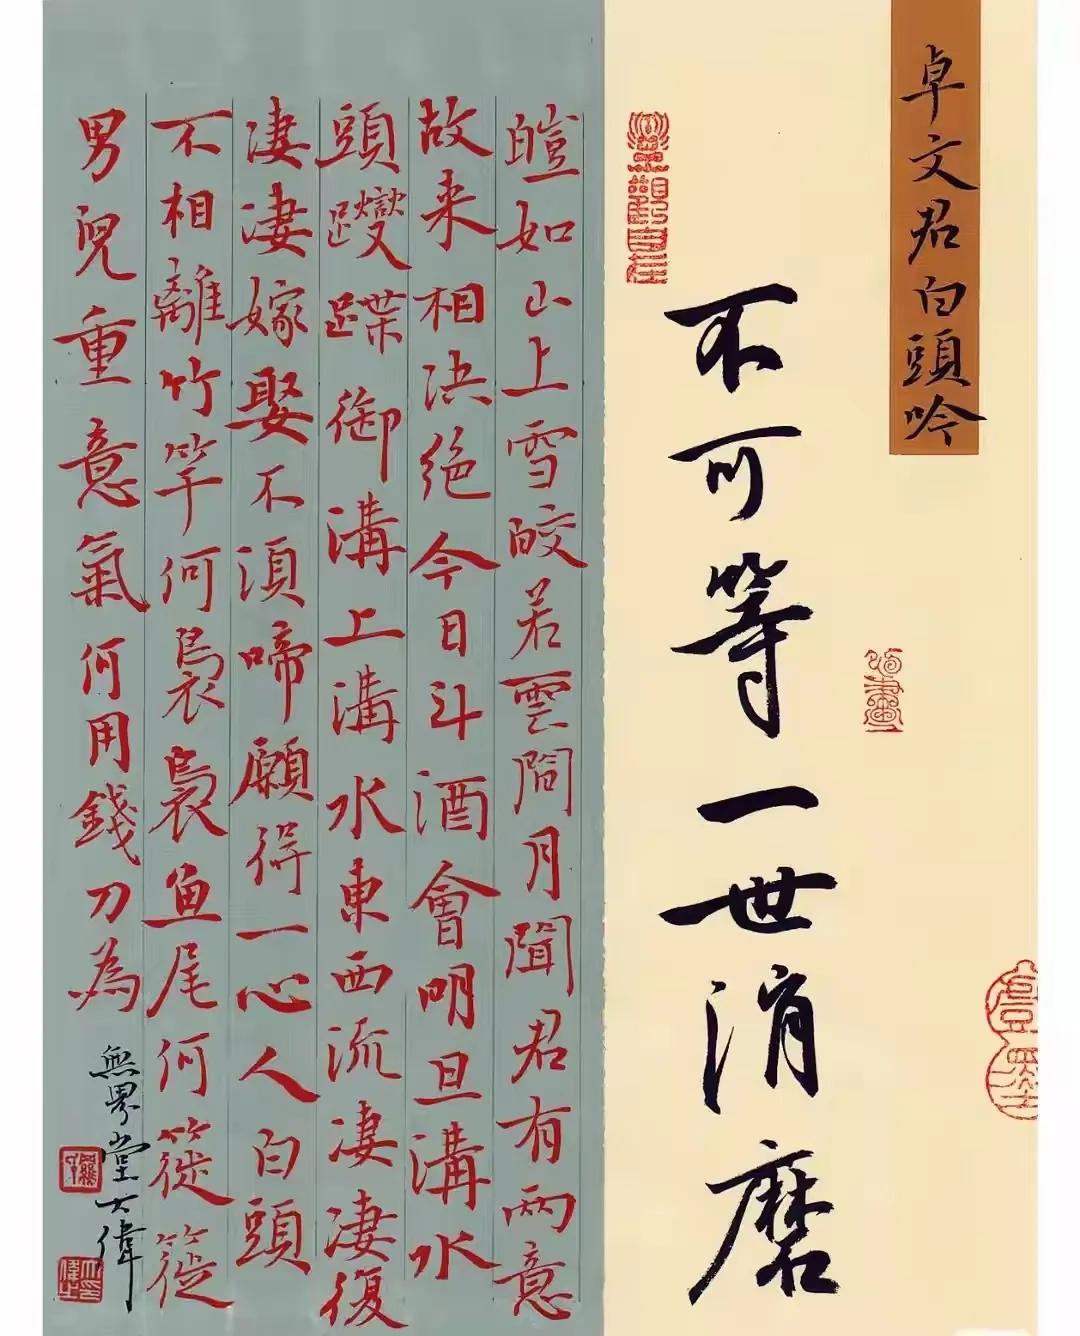 卓文君白頭吟
不可等一世消磨
皚如山上雪皎若雲間月聞君有兩意
故来相決絕今日斗酒會明旦溝水
頭躞蹀御溝上溝水東西流淒淒復
淒淒嫁娶不須啼願得一心人白頭
不相離竹竿何裊裊鱼尾何簁簁
男兒重意氣何用錢刀為
無界堂大偉